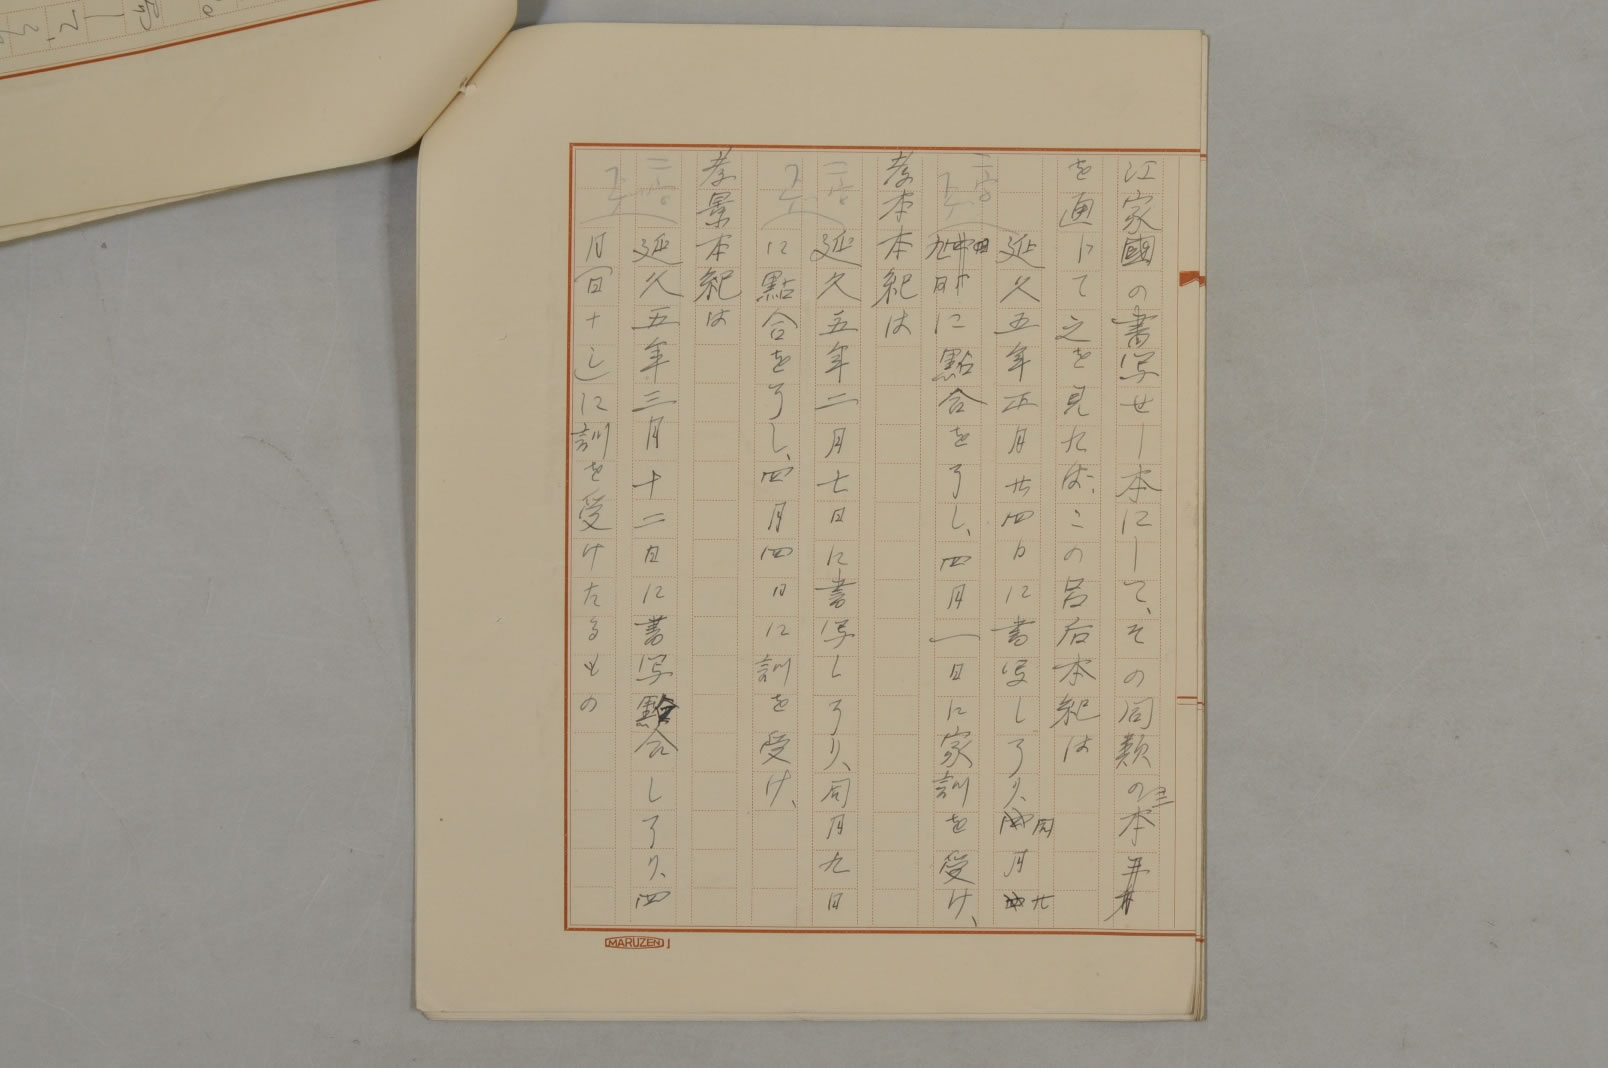 江家國の書写せし一本にして、その同類の三本
を通じて之を見れば、この呂后本紀は
延久五年正月廿四日に書写し了り、同月廿
九日に點合を了し、四月一日に家訓を受け、
孝本本紀は
二字
下ケ
延久五年二月七日に書写し了り、同月九日
に點合を了し、四月四日に訓を受け、
孝景本紀は
二字
下ケ
延久五年三月十二日に書写點合し了り、四
月(日ナし)に訓を受けたるもの
MARUZEN